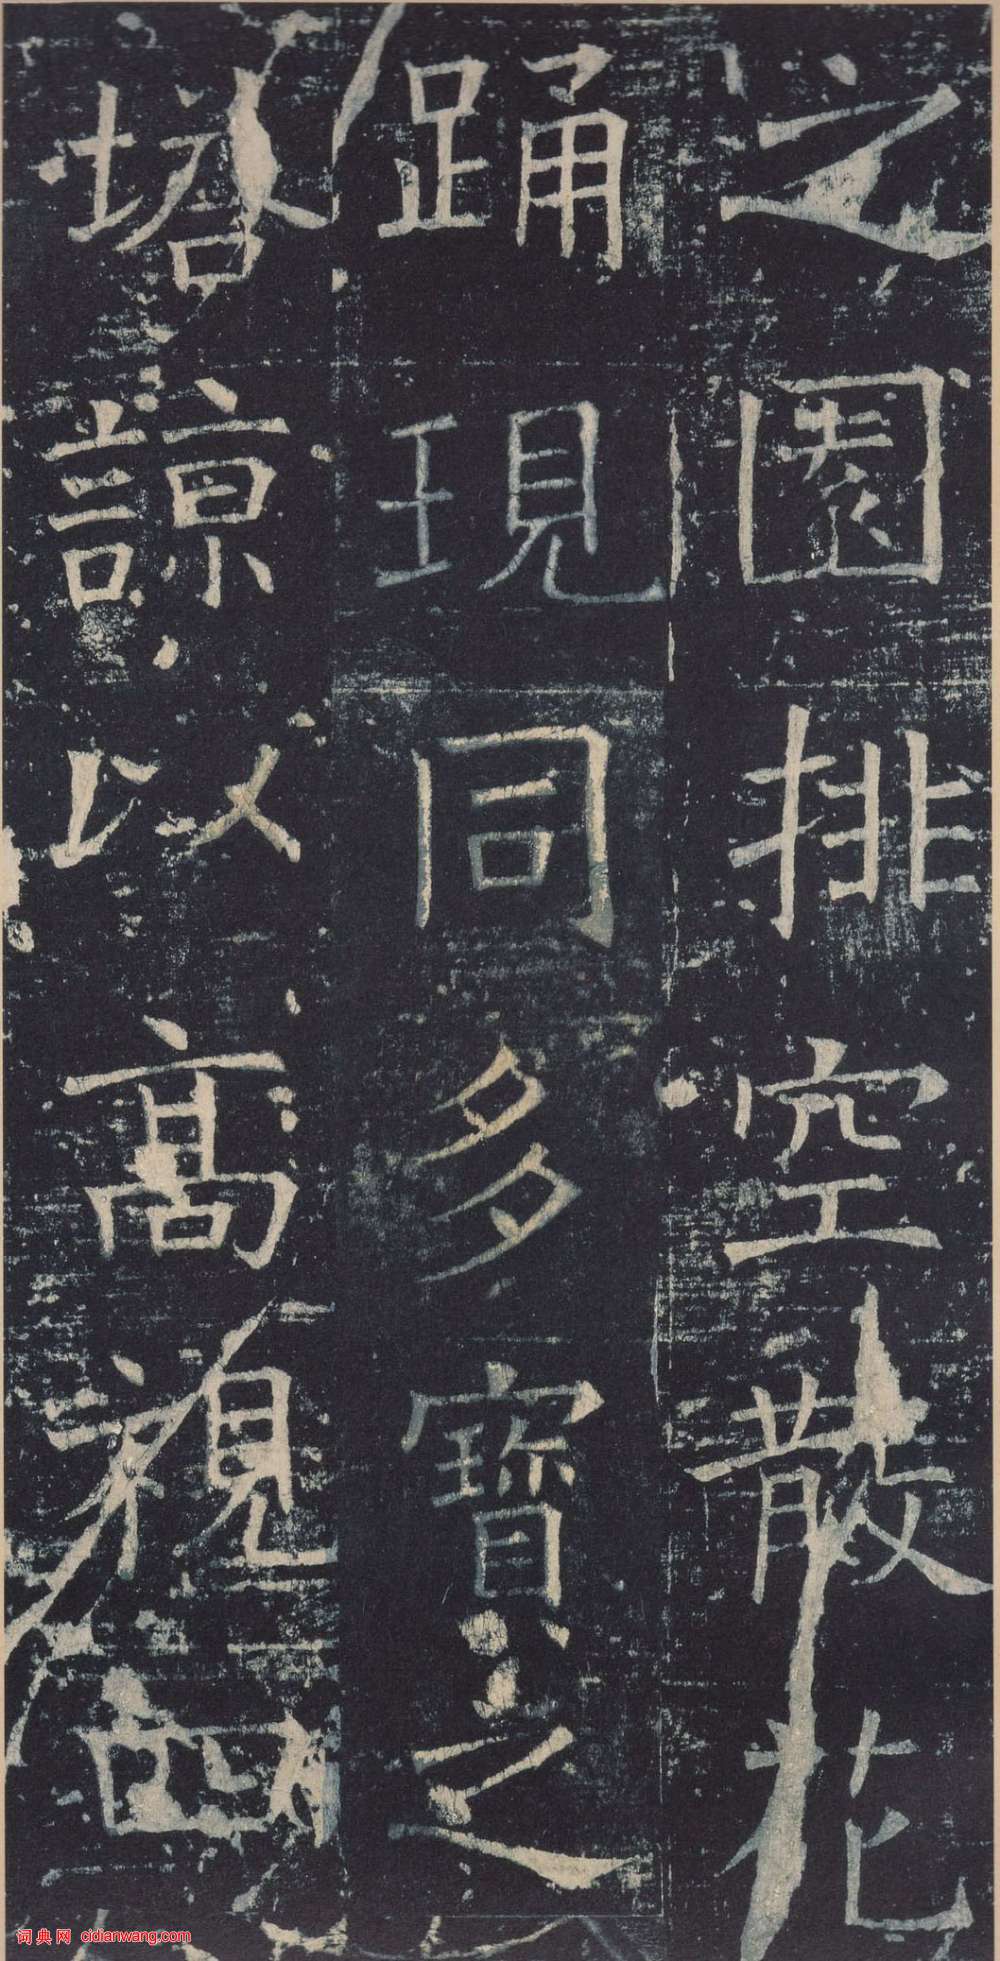 之園排空散花
踊現同多寶之
塔諒以高視四
词典网 cidianwang.com